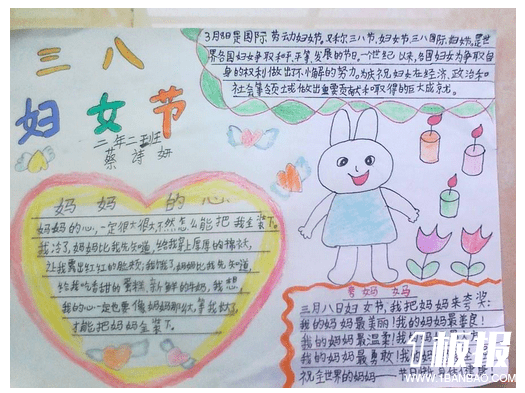 三八
妇女节
二年二班
蔡诗妍
3月8日是国际劳动妇女节,又称三八节,妇女节,三八国际妇女节。是世
界各国妇女争取和平、平等、发展的节日。一个世纪以来,各国妇女为争取自
身的权利做出了不懈的努力。为庆祝妇女在经济、政治和
社会等领域做出重要贡献和取得的巨大成就。
妈妈的心
妈妈的心,一定很大很大,不然怎么能把我全装下。
我冷了,妈妈比我先知道,给我穿上厚厚的棉衣,
让我露出红红的脸颊,我饿了,妈妈比我先知道,
给我吃香甜的蛋糕,新鲜的牛奶,我想
我的心一定也要像妈妈那么,等我长大了,
才能把妈妈全装下。
妈妈
三月八日妇女节,我把妈妈来夸奖:
我的妈妈最美丽!我的妈妈最善良!
我的妈妈最温柔!我的妈妈
我的妈妈最勇敢!我的妈妈
祝全世界的妈妈——节日快乐身体健康!
板报
WWW.1BANBAO.COM